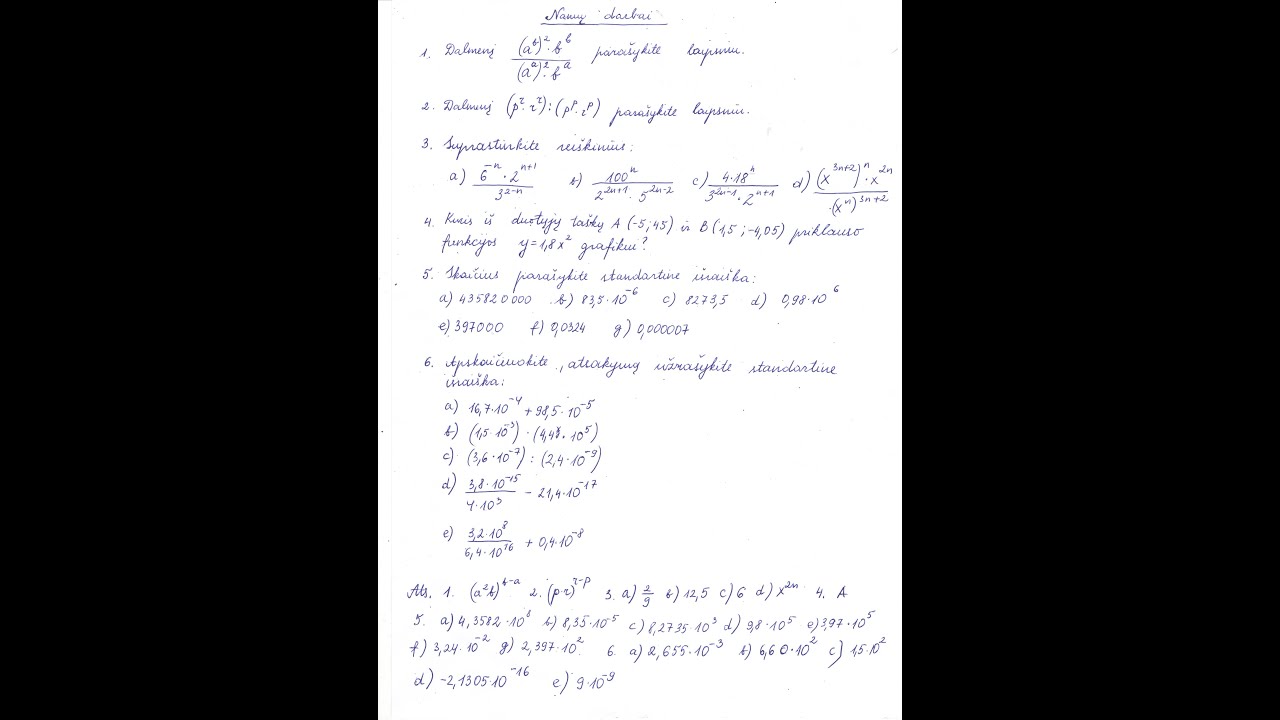 Namų darbai
1. Dalmenį \frac{(a^b)^2 · b^b}{(a^a)^2 · b^a} parašykite laipsniu.
2. Dalmenį (p^r · r^r) : (p^p · r^p) parašykite laipsniu.
3. Suprastinkite reiškinius:
a) \frac{6^{-n} · 2^{n+1}}{3^{2-n}} b) \frac{100^n}{2^{2n+1} · 5^{2n-2}} c) \frac{4·18^n}{3^{2n-1} · 2^{n+1}} d) \frac{(x^{3n+2})^n · x^{2n}}{·(x^n)^{3n+2}}
4. Kuris iš duotųjų taškų A (-5; 45) ir B (1,5 ; -4,05) priklauso
funkcijos y = 1,8x² grafikui?
5. Skaičius parašykite standartine išraiška:
a) 435820000 b) 83,5·10^{-6} c) 8273,5 d) 0,98·10^6
e) 397000 f) 0,0324 g) 0,000007
6. Apskaičiuokite, atsakymą užrašykite standartine
išraiška:
a) 16,7·10^{-4} + 98,5·10^{-5}
b) (1,5·10^{-3}) · (4,4 · 10^5)
c) (3,6·10^{-7}) : (2,4·10^{-9})
d) \frac{3,8·10^{-15}}{4·10^3} - 21,4·10^{-17}
e) \frac{3,2·10^8}{6,4·10^{16}} + 0,4·10^{-8}
Ats. 1. (a²b)^{b-a} 2. (p·r)^{r-p} 3. a) \frac{2}{9} b) 12,5 c) 6 d) x^{2n} 4. A
5. a) 4,3582·10^8 b) 8,35·10^{-5} c) 8,2735·10^3 d) 9,8·10^5 e) 3,97·10^5
f) 3,24·10^{-2} g) 2,397·10^2 6. a) 2,655·10^{-3} b) 6,60·10^2 c) 1,5·10^2
d) -2,1305·10^{-16} e) 9·10^{-9}